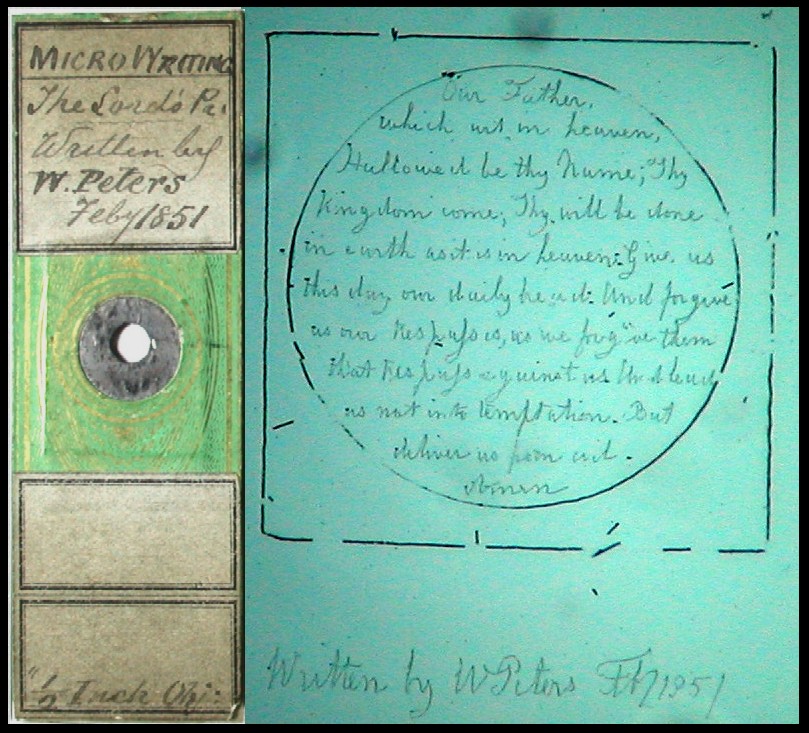 MICRO WRITING
The Lord's Pr.
Written by
W. Peters
Feby 1851
"½ Inch Obj:
Our Father,
which art in heaven,
Hallowed be thy Name; Thy
Kingdom come; Thy will be done
in earth as it is in heaven: Give us
this day our daily bread: And forgive
us our trespasses, as we forgive them
that trespass against us And lead
us not into temptation. But
deliver us from evil.
Amen
Written by W Peters Feby 1851